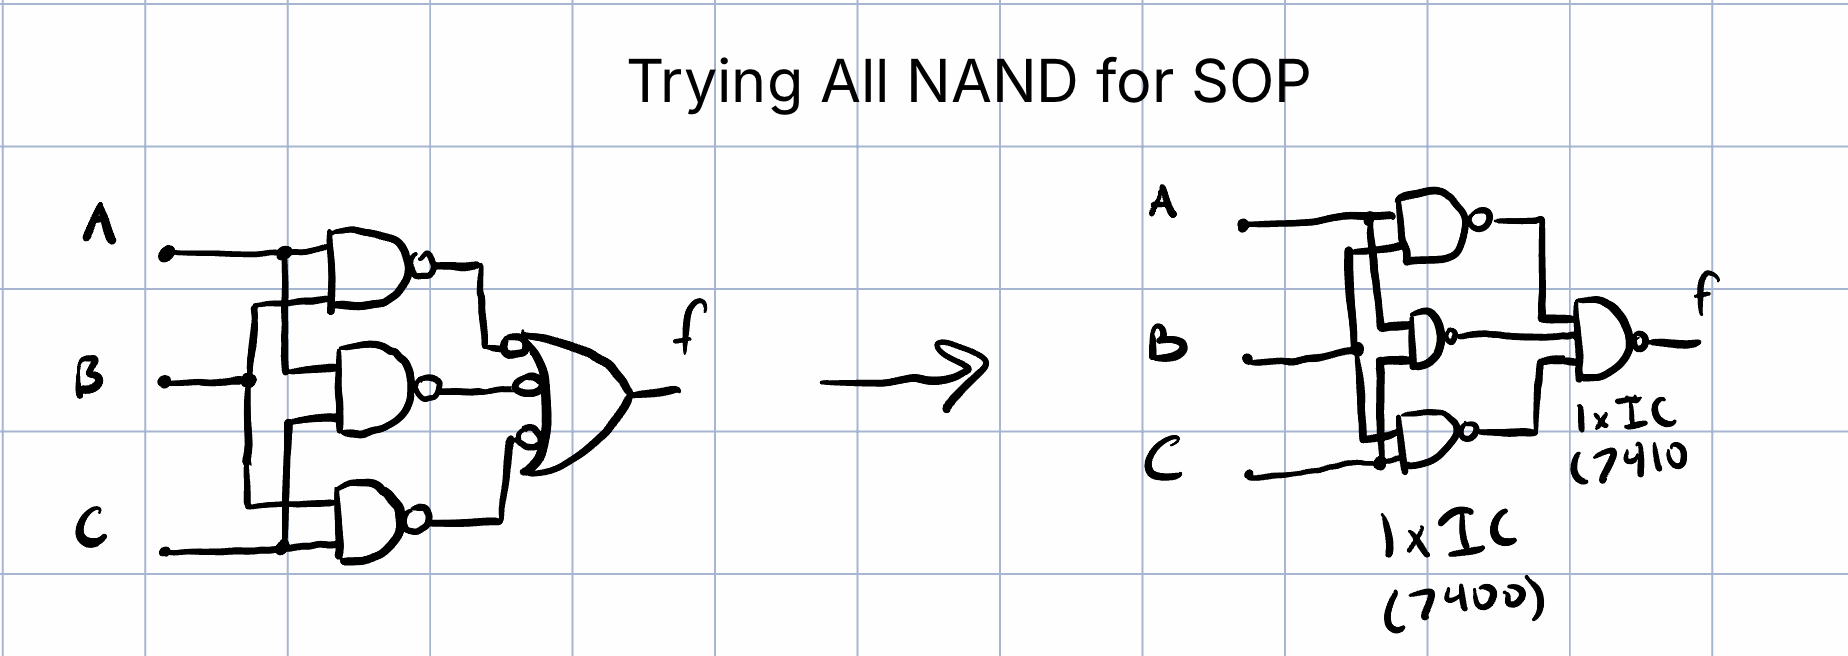 Trying All NAND for SOP
A
B
C
f
A
B
C
f
1xIC
(7410
1xIC
(7400)